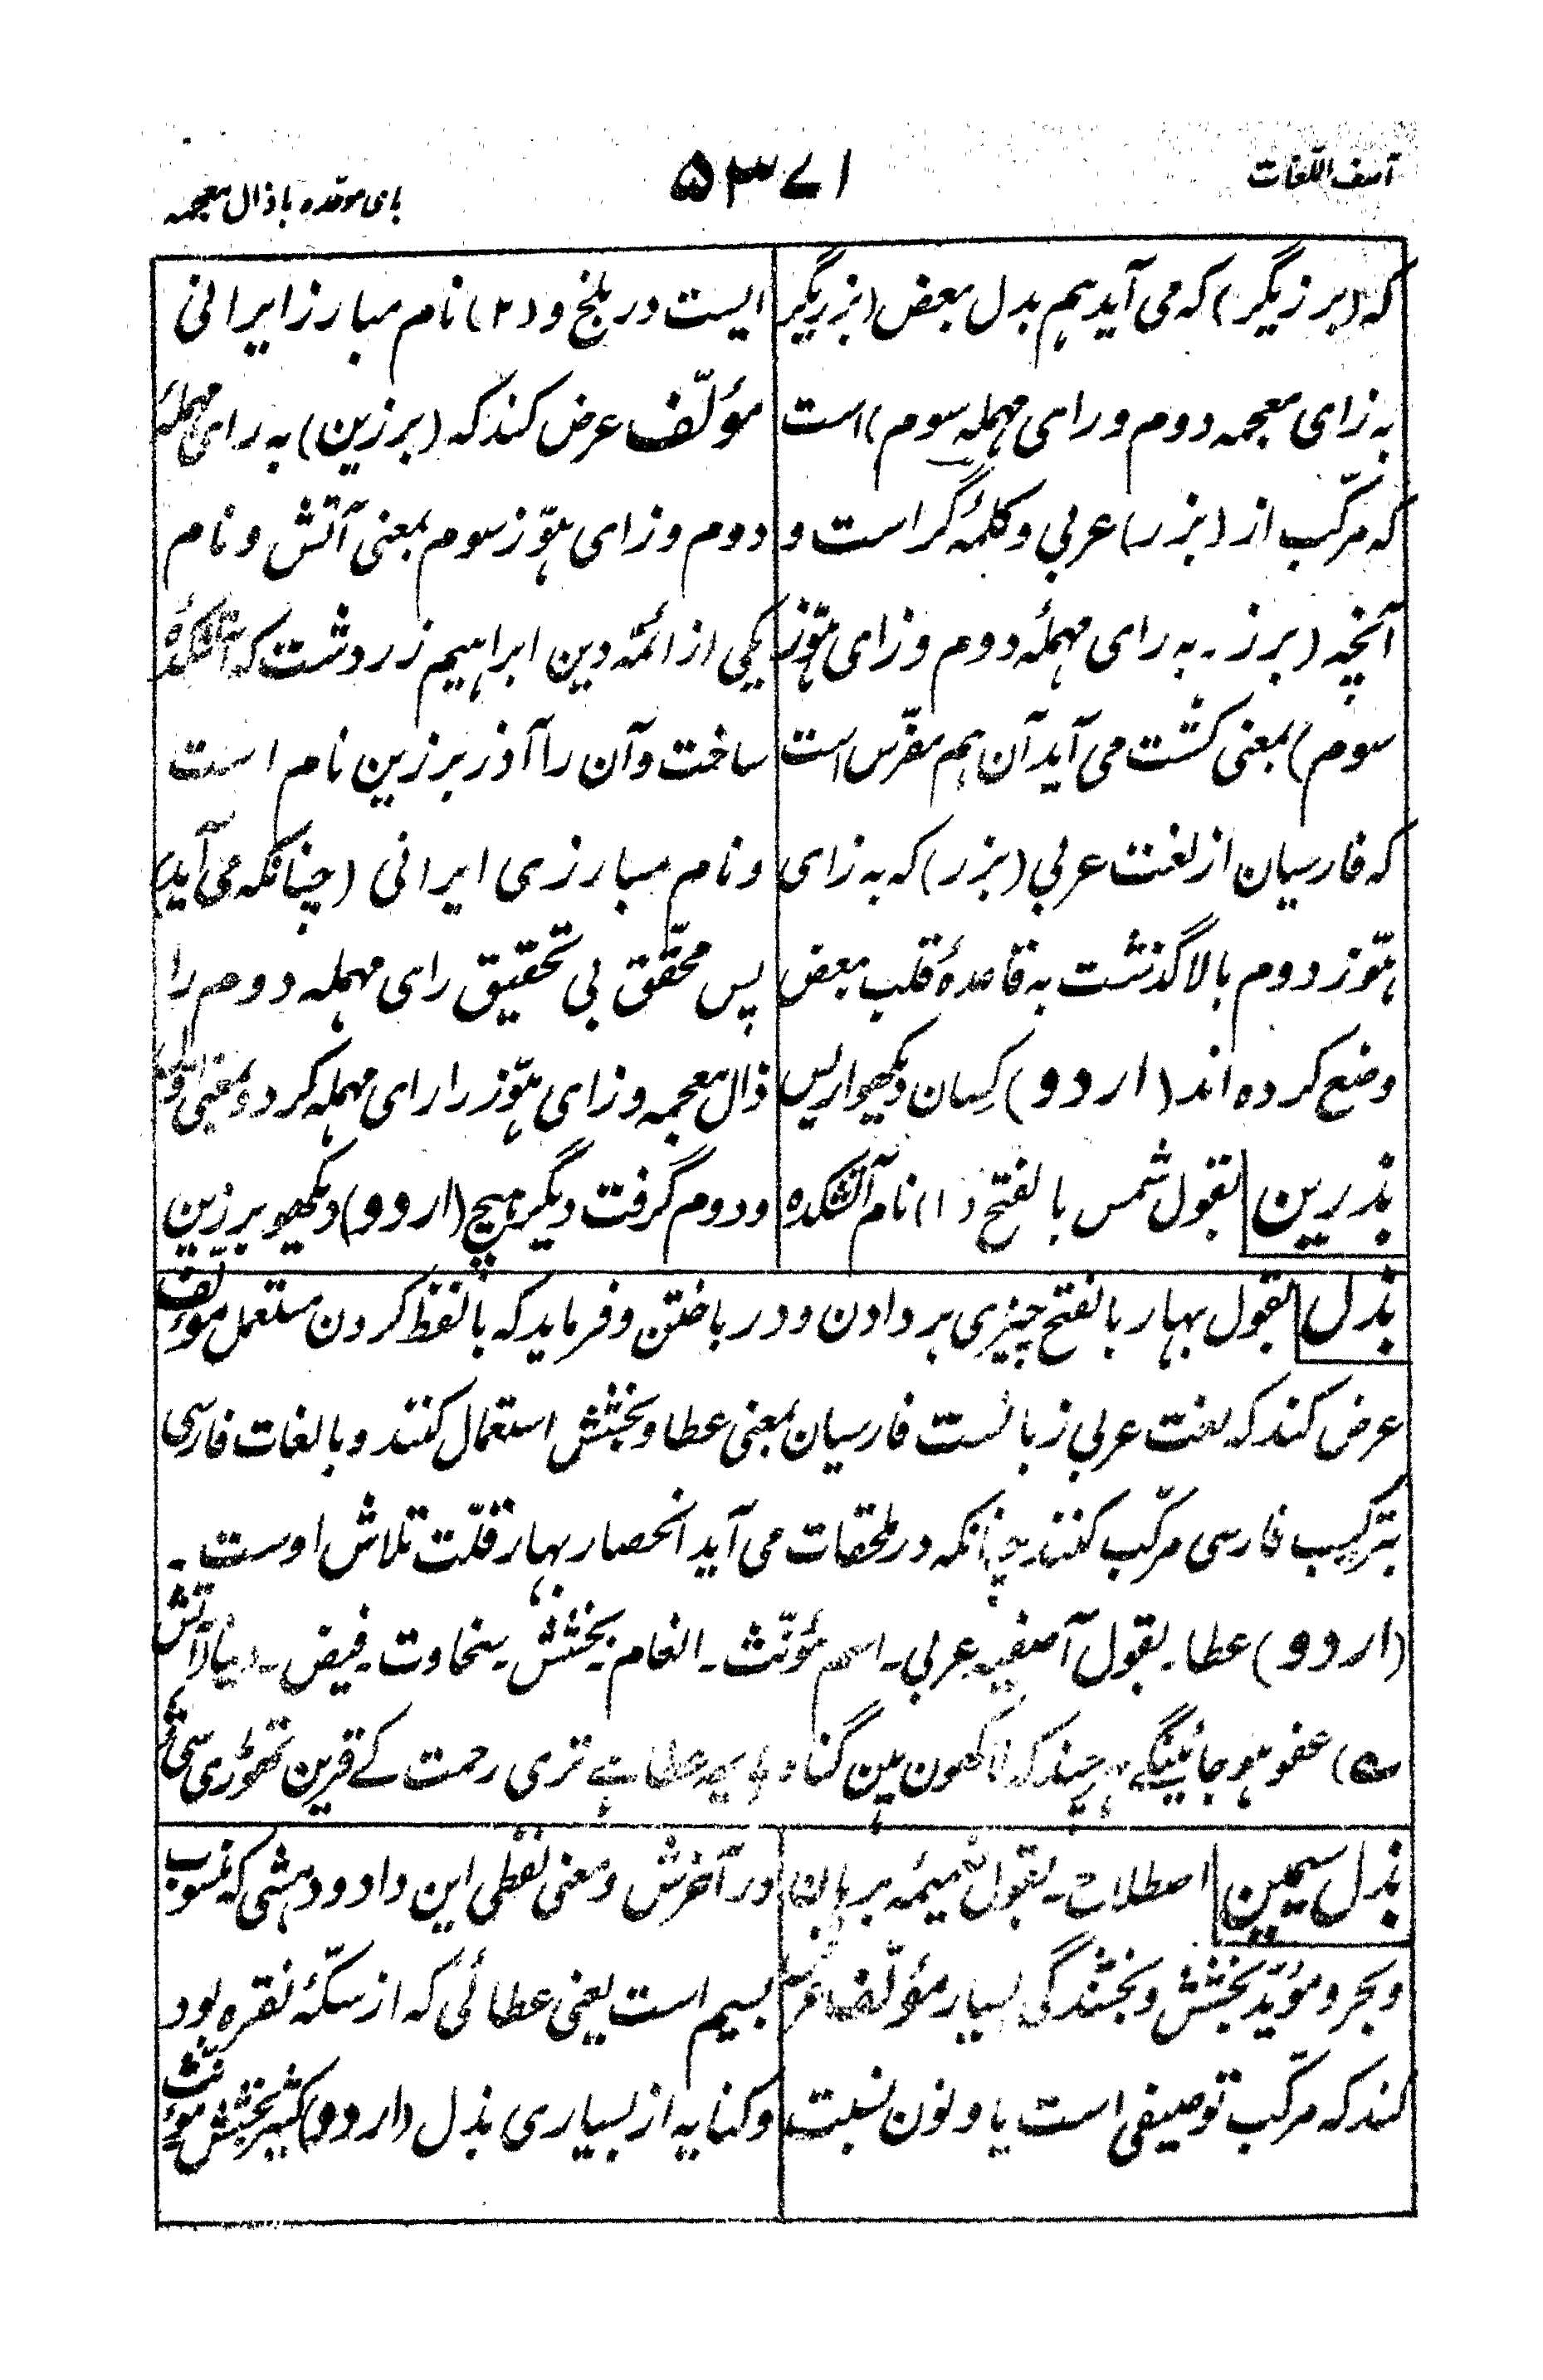 آصف اللّغات
۵۳۷۱
بای موحّده با ذال معجمه
که (برزیگر) که می آید هم بدل بعض (بزریگر
به زای معجمه دوم و رای مهمله سوم) است
که مرکّب از (بزر) عربی و کلمهٔ گر است و
آنچه (برز ۔ به رای مهملهٔ دوم و زای هوّز
سوم) بمعنی کشت می آید آن هم مفرّس است
که فارسیان از لغت عربی (بزر) که به زای
هوّز دوم بالا گذشت به قاعدهٔ قلب بعض
وضع کرده اند (اردو) کِسان دیکھو اریس
بذرین بقول شمس بالفتح (۱) نام آتشکده
ایست در بلخ و (۲) نام مبارز ایرانی
مؤلّف عرض کند که (برزین) به رای مهملهٔ
دوم و زای هوّز سوم بمعنی آتش و نام
یکی از ائمّه دین ابراهیم زردشت که آتشکدهٔ
ساخت و آن را آذر برزین نام است
و نام مبارزی ایرانی (چنانکه می آید)
پس محقّق بی تحقیق رای مهمله دوم را
ذال معجمه و زای هوّز را رای مهمله کرد و بمعنی اوّل
و دوم گرفت دیگر هیچ (اردو) دیکھو برزین
بذل بقول بهار بالفتح چیزی بر دادن و در باختن و فرماید که با لفظ کردن مستعمل مؤلّف
عرض کند که لغت عربی زبانست فارسیان بمعنی عطا و بخشش استعمال کنند و با لغات فارسی
بترکیب فارسی مرکّب کنند چنانکه در ملحقات می آید انحصار بهار قلّت تلاش اوست ۔
(اردو) عطا ۔ بقول آصفیه عربی ۔ اسم مؤنّث ۔ انعام ۔ بخشش ۔ سخاوت ۔ فیض ۔ دینا (آتش
ے) عفو ہو جائینگے ہر چند کہ لاکھون ہین گناہ یہ عطا ہے تری رحمت کے قرین تھوڑی سی
بذل سیمین اصطلاح ۔ بقول ضمیمهٔ برهان
و بحر و مؤیّد بخشش و بخشندگی بسیار مؤلّف عرض
کند که مرکّب توصیفی است یا و نون نسبت
در آخرش و معنی لفظی این داد و دهشی که منسوب
بسیم است یعنی عطائی که از سکّهٔ نقره بود
و کنایه از بسیاری بذل (اردو) کثیر بخشش مؤنّث